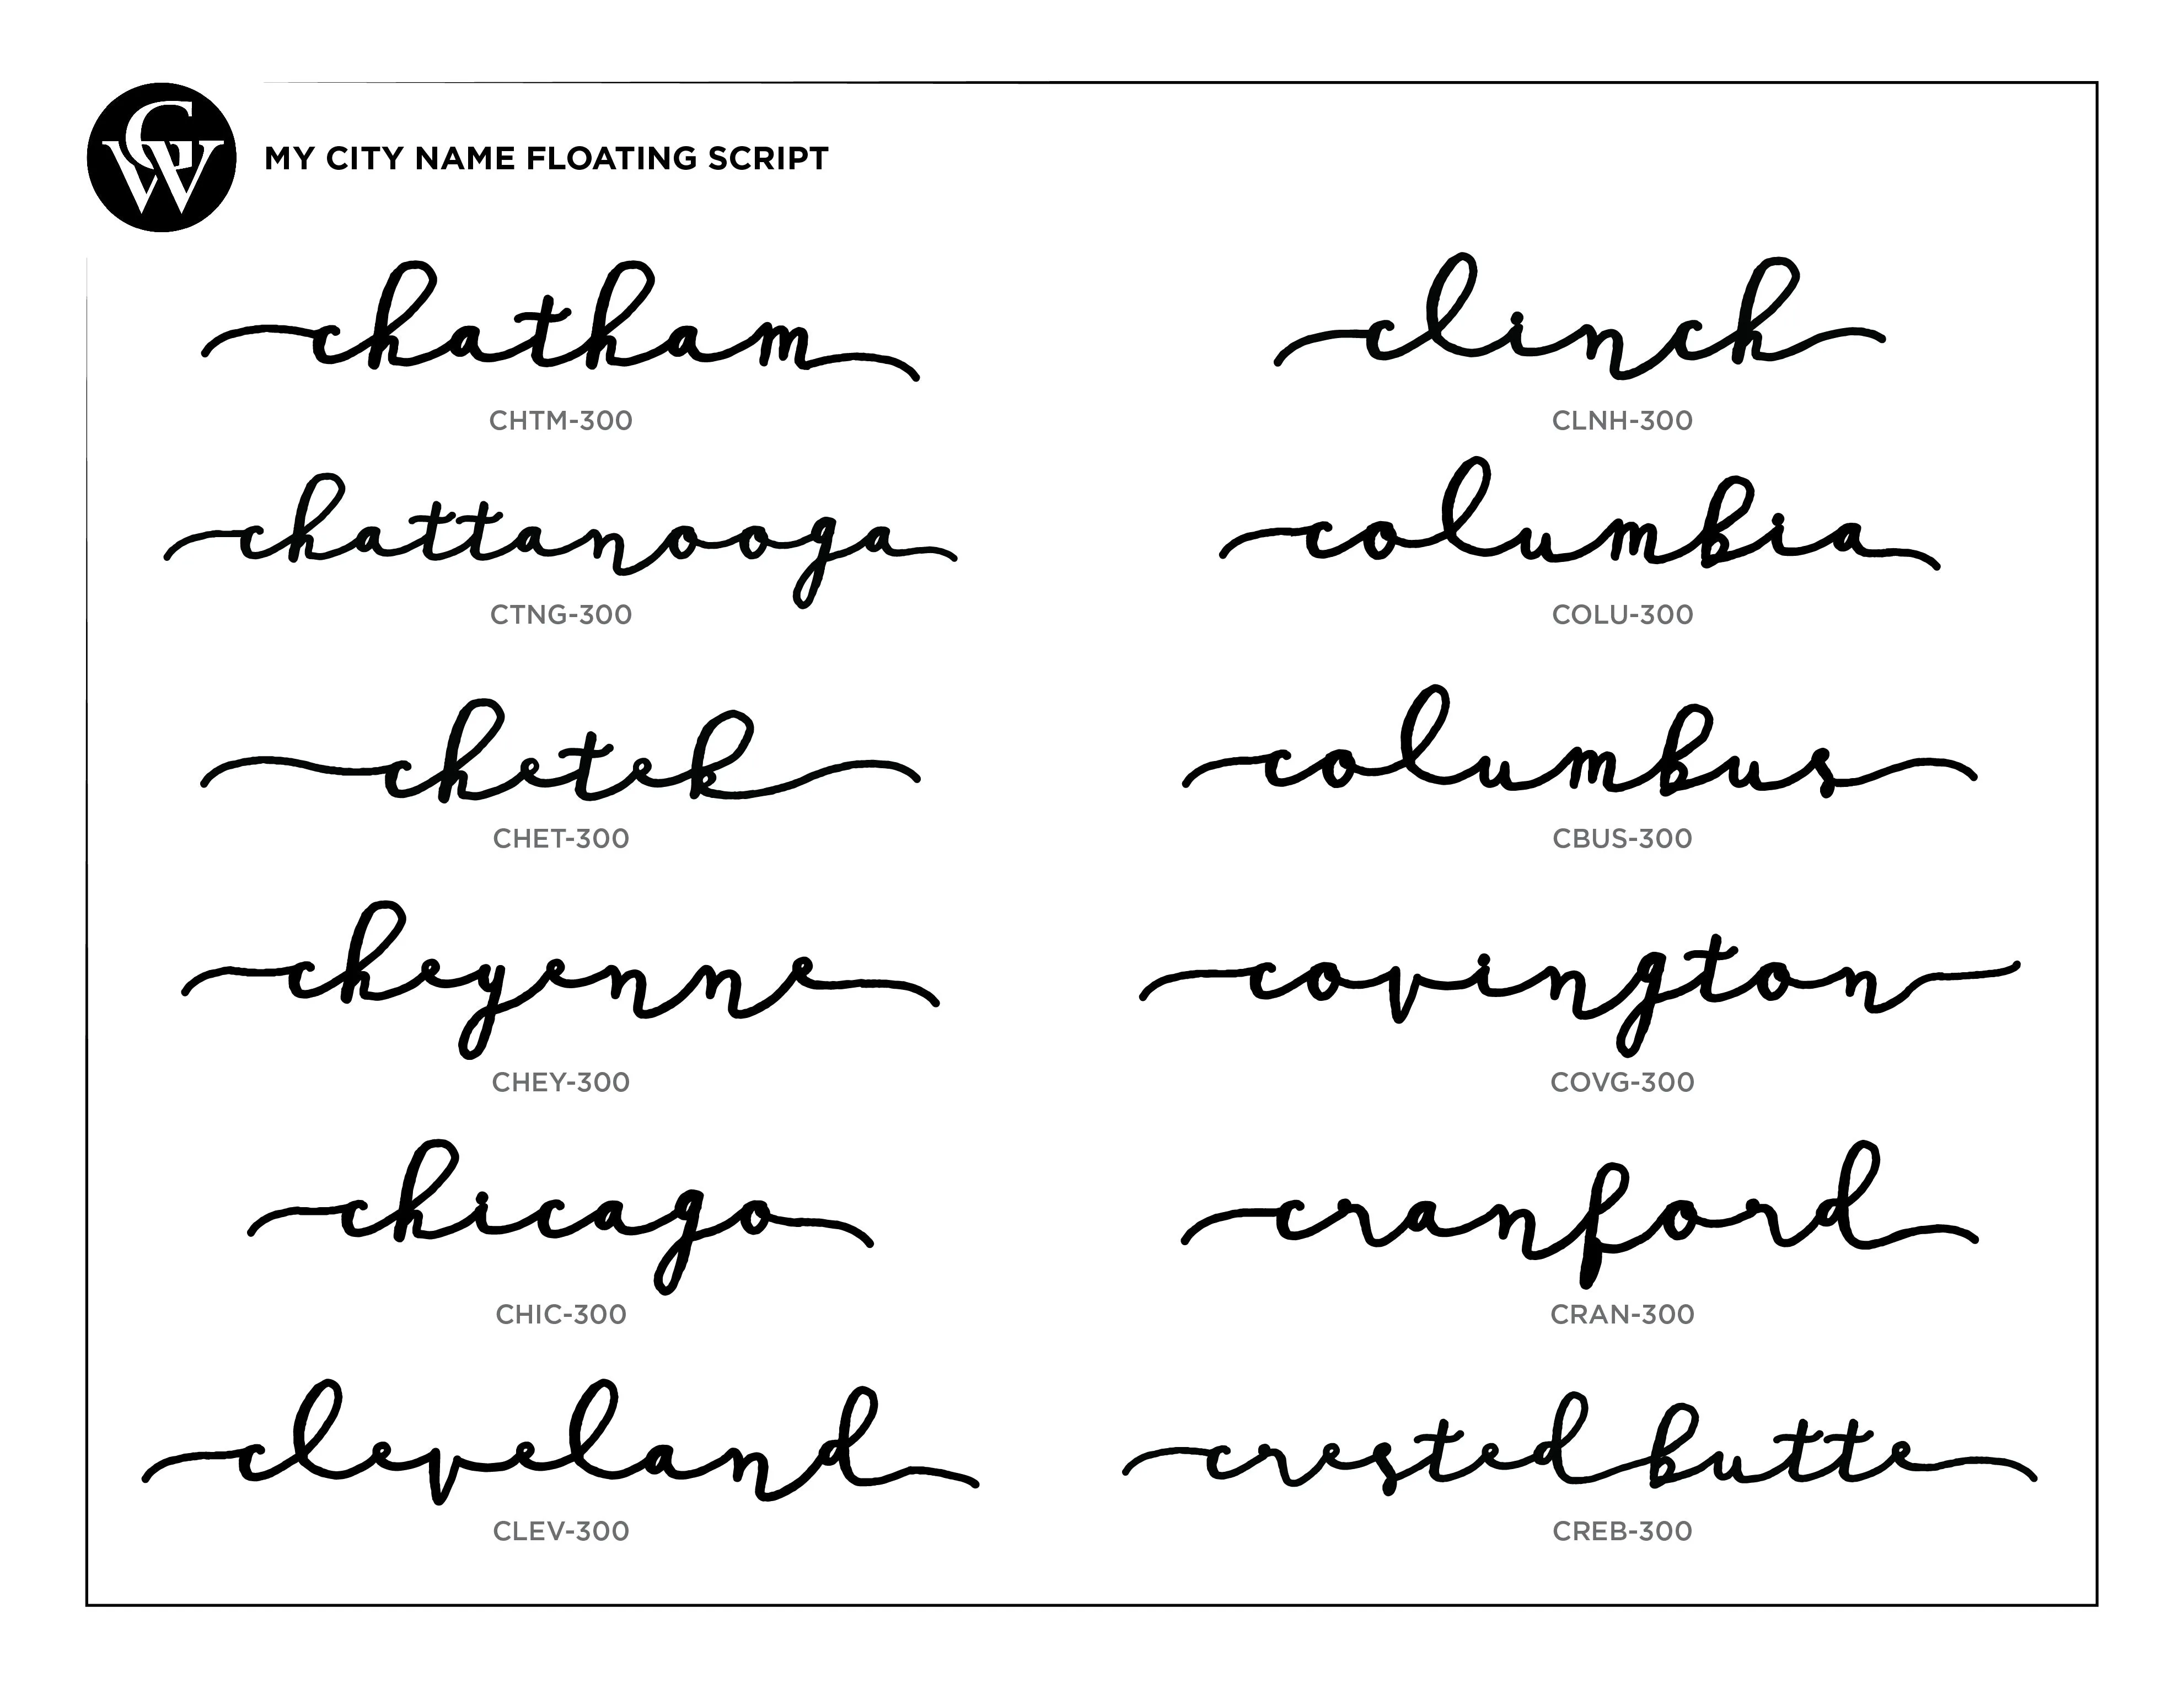 CW
MY CITY NAME FLOATING SCRIPT
chatham
CHTM-300
clinch
CLNH-300
chattanooga
CTNG-300
columbia
COLU-300
chetek
CHET-300
columbus
CBUS-300
cheyenne
CHEY-300
covington
COVG-300
chicago
CHIC-300
cranford
CRAN-300
cleveland
CLEV-300
crested butte
CREB-300